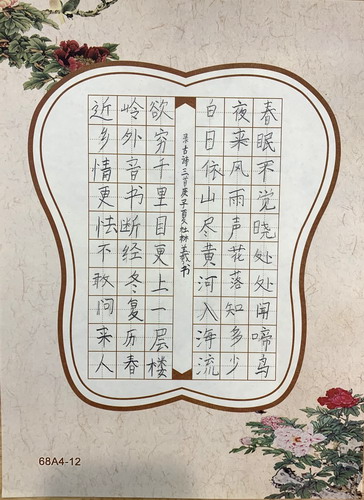 春眠不觉晓处处闻啼鸟
夜来风雨声花落知多少
白日依山尽黄河入海流
录古诗三首庚子夏杜林书
欲穷千里目更上一层楼
岭外音书断经冬复历春
近乡情更怯不敢问来人
68A4-12